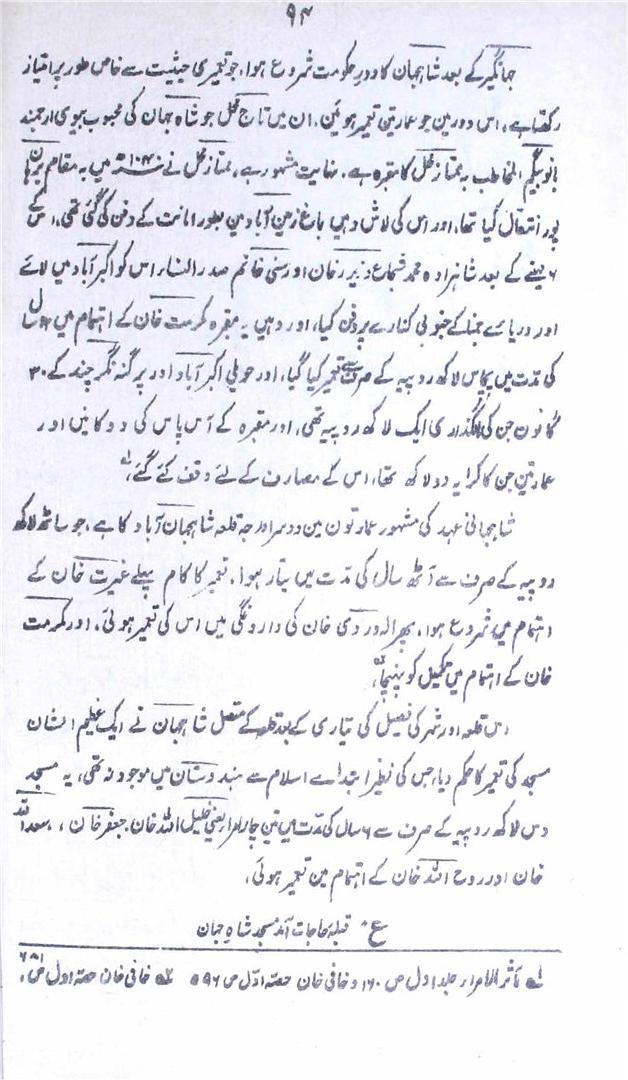 ۹۴
جہانگیر کے بعد شاہجہان کا دورِ حکومت شروع ہوا، جو تعمیری حیثیت سے خاص طور پر امتیاز
رکھتا ہے، اس دور میں جو عمارتین تعمیر ہوئین، ان میں تاج محل جو شاہ جہان کی محبوب بیوی ارجمند
بانو بیگم المخاطب بہ ممتاز محل کا مقبرہ ہے، نہایت مشہور ہے، ممتاز محل نے ۱۰۴۰ھ میں بہ مقام برہان
پور انتقال کیا تھا، اور اس کی لاش وہیں باغ زین آباد مین بطور امانت کے دفن کی گئی تھی، اس کے
۶ مہینے کے بعد شاہزادہ محمد شجاع وزیر خان اور ستی خانم صدر النساء اس کو اکبر آباد میں لائے
اور دریائے جمنا کے جنوبی کنارے پر دفن کیا، اور وہیں یہ مقبرہ مکرمت خان کے اہتمام میں سال
کی مدت میں پچاس لاکھ روپیہ کے صرف سے تعمیر کیا گیا، اور حویلی اکبر آباد اور پرگنہ نگر چند کے ۳۰
گانون جن کی مالگذاری ایک لاکھ روپیہ تھی، اور مقبرہ کے آس پاس کی دوکانیں اور
عمارتین جن کا کرایہ دو لاکھ تھا، اس کے مصارف کے لئے وقف کئے گئے،
شاہجہانی عہد کی مشہور عمارتون مین دوسرا درجہ قلعہ شاہجہان آباد کا ہے، جو ساٹھ لاکھ
روپیہ کے صرف سے آٹھ سال کی مدت میں تیار ہوا، تعمیر کا کام پہلے غیرت خان کے
اہتمام میں شروع ہوا، پھر الہ وردی خان کی داروغگی میں اس کی تعمیر ہوئی، اور مکرمت
خان کے اہتمام میں تکمیل کو پہنچا،
اس قلعہ اور شہر کی فصیل کی تیاری کے بعد قلعہ کے متصل شاہجہان نے ایک عظیم الشان
مسجد کی تعمیر کا حکم دیا، جس کی نظیر ابتداے اسلام سے ہندوستان میں موجود نہ تھی، یہ مسجد
دس لاکھ روپیہ کے صرف سے ۶ سال کی مدت میں تین چار امراء یعنی خلیل اللہ خان، جعفر خان، سعد اللہ
خان اور روح اللہ خان کے اہتمام مین تعمیر ہوئی،
ع قبلہ حاجات آمد مسجد شاہِ جہان
لہ مآثر الامراء جلد اول ص ۱۶۰ و خافی خان حصہ اوّل ص ۵۹۶ ۲ہ خافی خان حصہ اول ص ۶۸۱